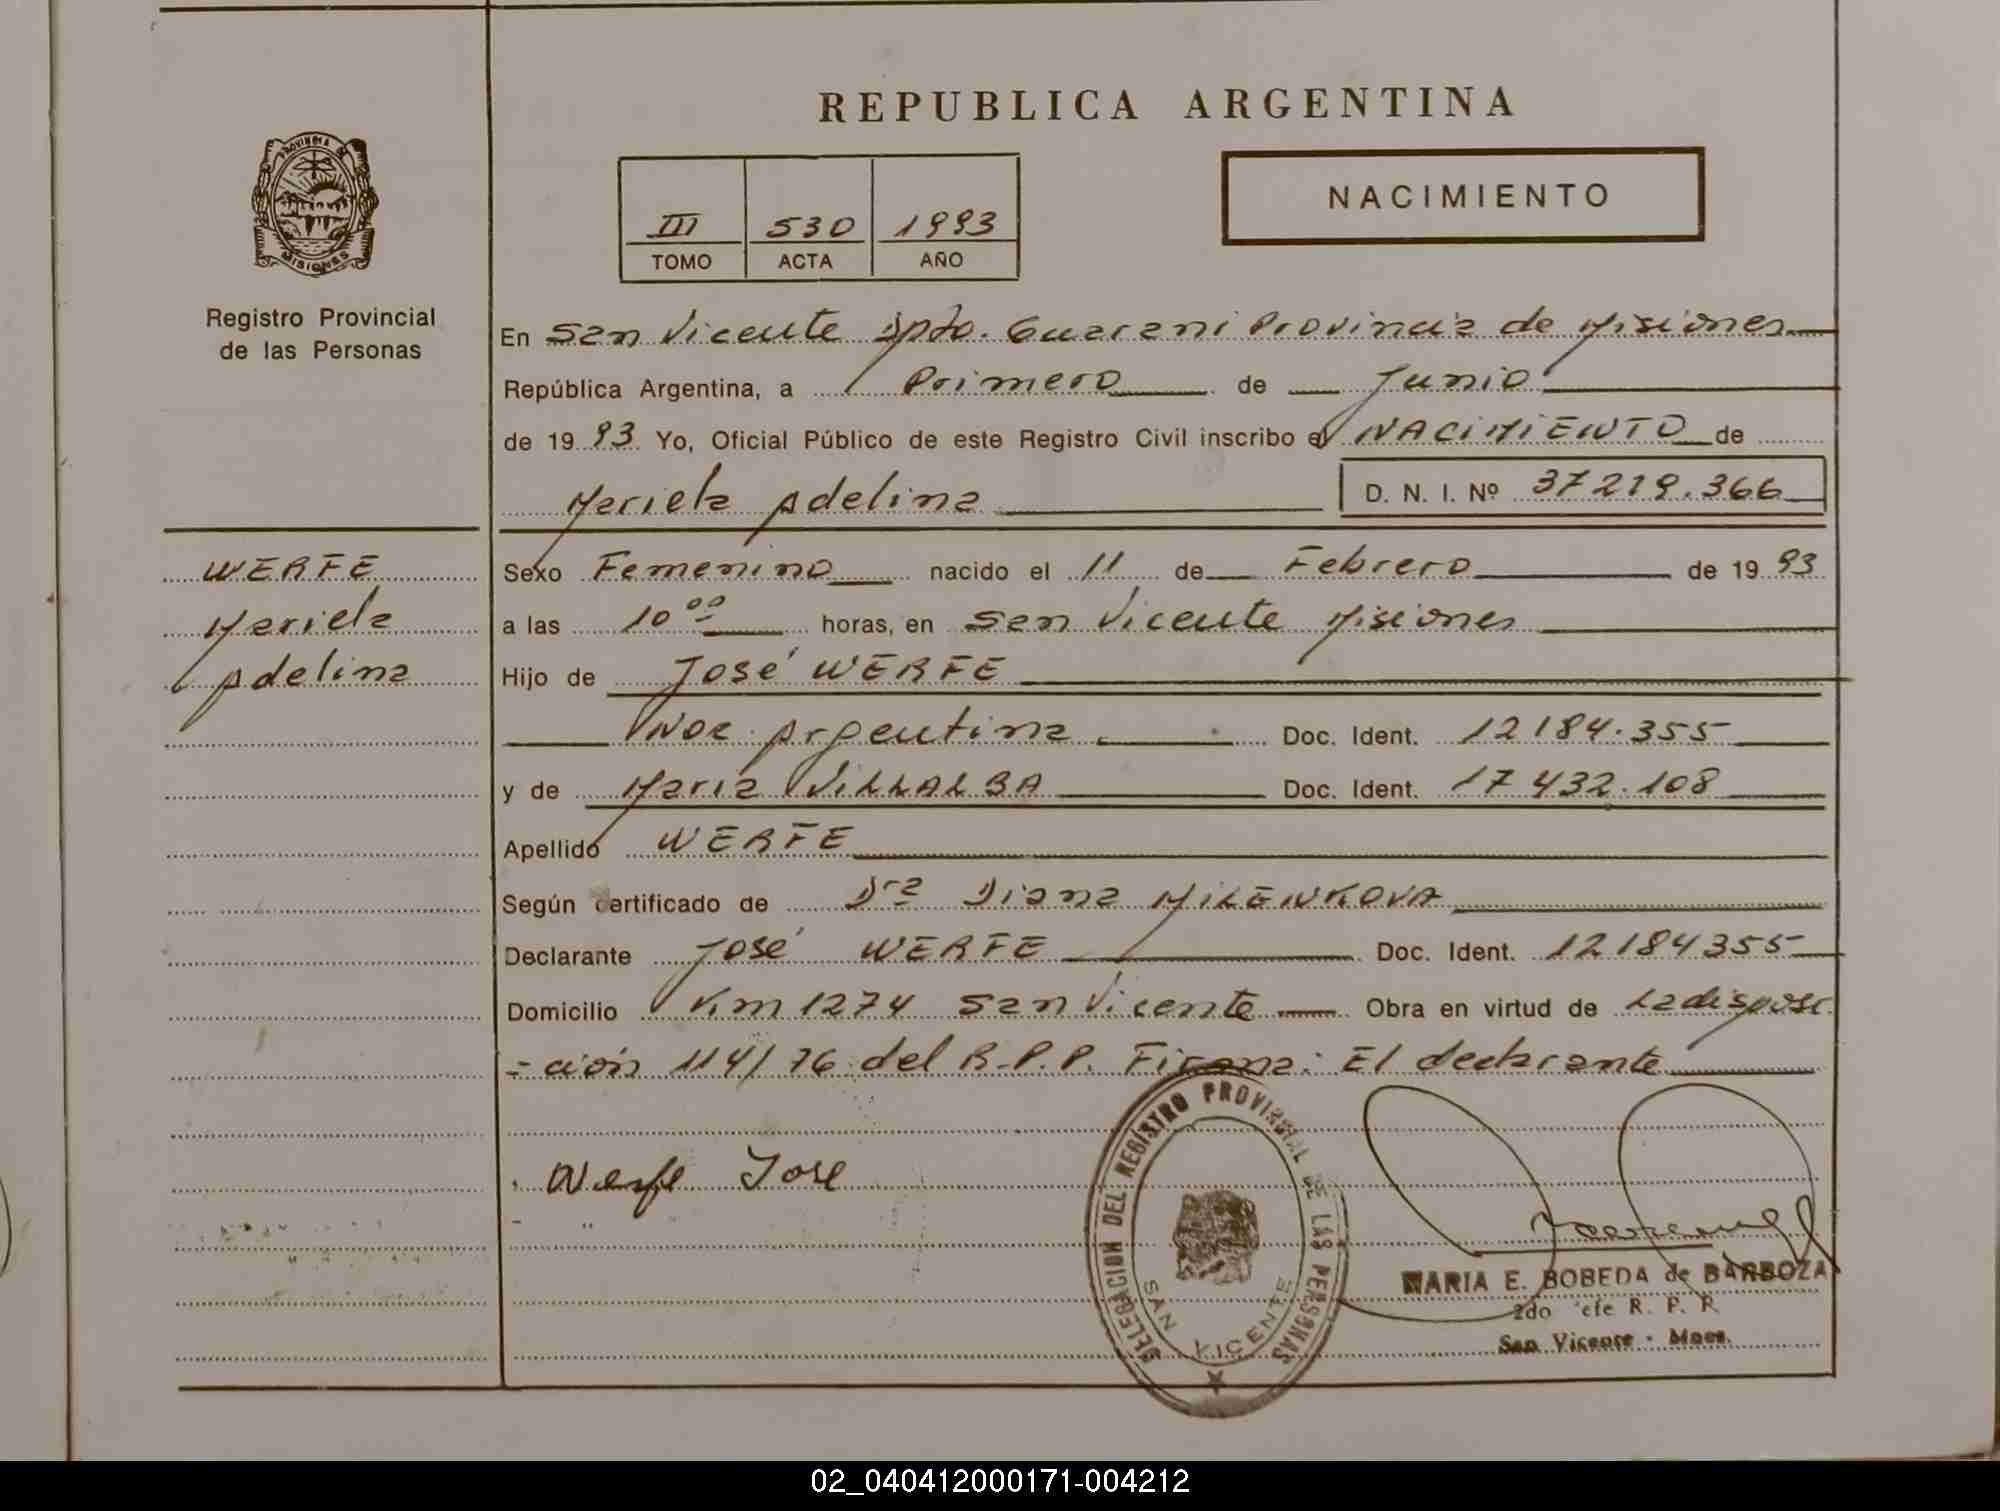 REPUBLICA ARGENTINA
PROVINCIA DE
MISIONES
Registro Provincial
de las Personas
III 530 1993
TOMO ACTA AÑO
NACIMIENTO
En San Vicente Dpto. Guarani Provincia de Misiones
República Argentina, a Primero de Junio
de 1993 Yo, Oficial Público de este Registro Civil inscribo el NACIMIENTO de
Mariela Adelina D. N. I. Nº 37219.366
WERFE
Mariela
Adelina
Sexo Femenino nacido el 11 de Febrero de 1993
a las 10 00 horas, en San Vicente Misiones
Hijo de José WERFE
Nac Argentina Doc. Ident. 12184.355
y de Maria VILLALBA Doc. Ident. 17432.108
Apellido WERFE
Según certificado de Dra Diana MILENKOVA
Declarante José WERFE Doc. Ident. 12184355
Domicilio Km 1274 San Vicente Obra en virtud de La disposi
-ción 114/76 del R.P.P. Firma: El declarante
Werfe Jose
DELEGACION DEL REGISTRO PROVINCIAL DE LAS PERSONAS
SAN VICENTE
MARIA E. BOBEDA de BARBOZA
2do Jefe R. P. P.
San Vicente - Mnes.
02_040412000171-004212